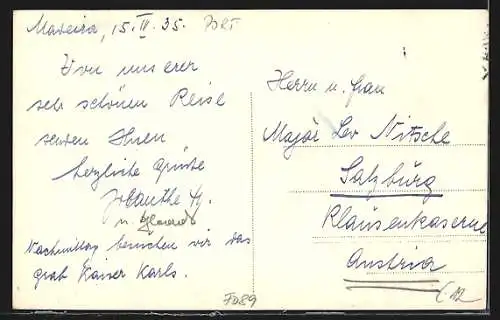 Madeira, 15. IV. 35. Port
Von unserer
sehr schönen Reise
senden Ihnen
herzliche Grüsse
Jolanthe
u.
Nachmittag besuchen wir das
Grab Kaiser Karls.
Herrn u. Frau
Major Leo Nitsche
Salzburg
Klausenkaserne
Austria
FD89
12